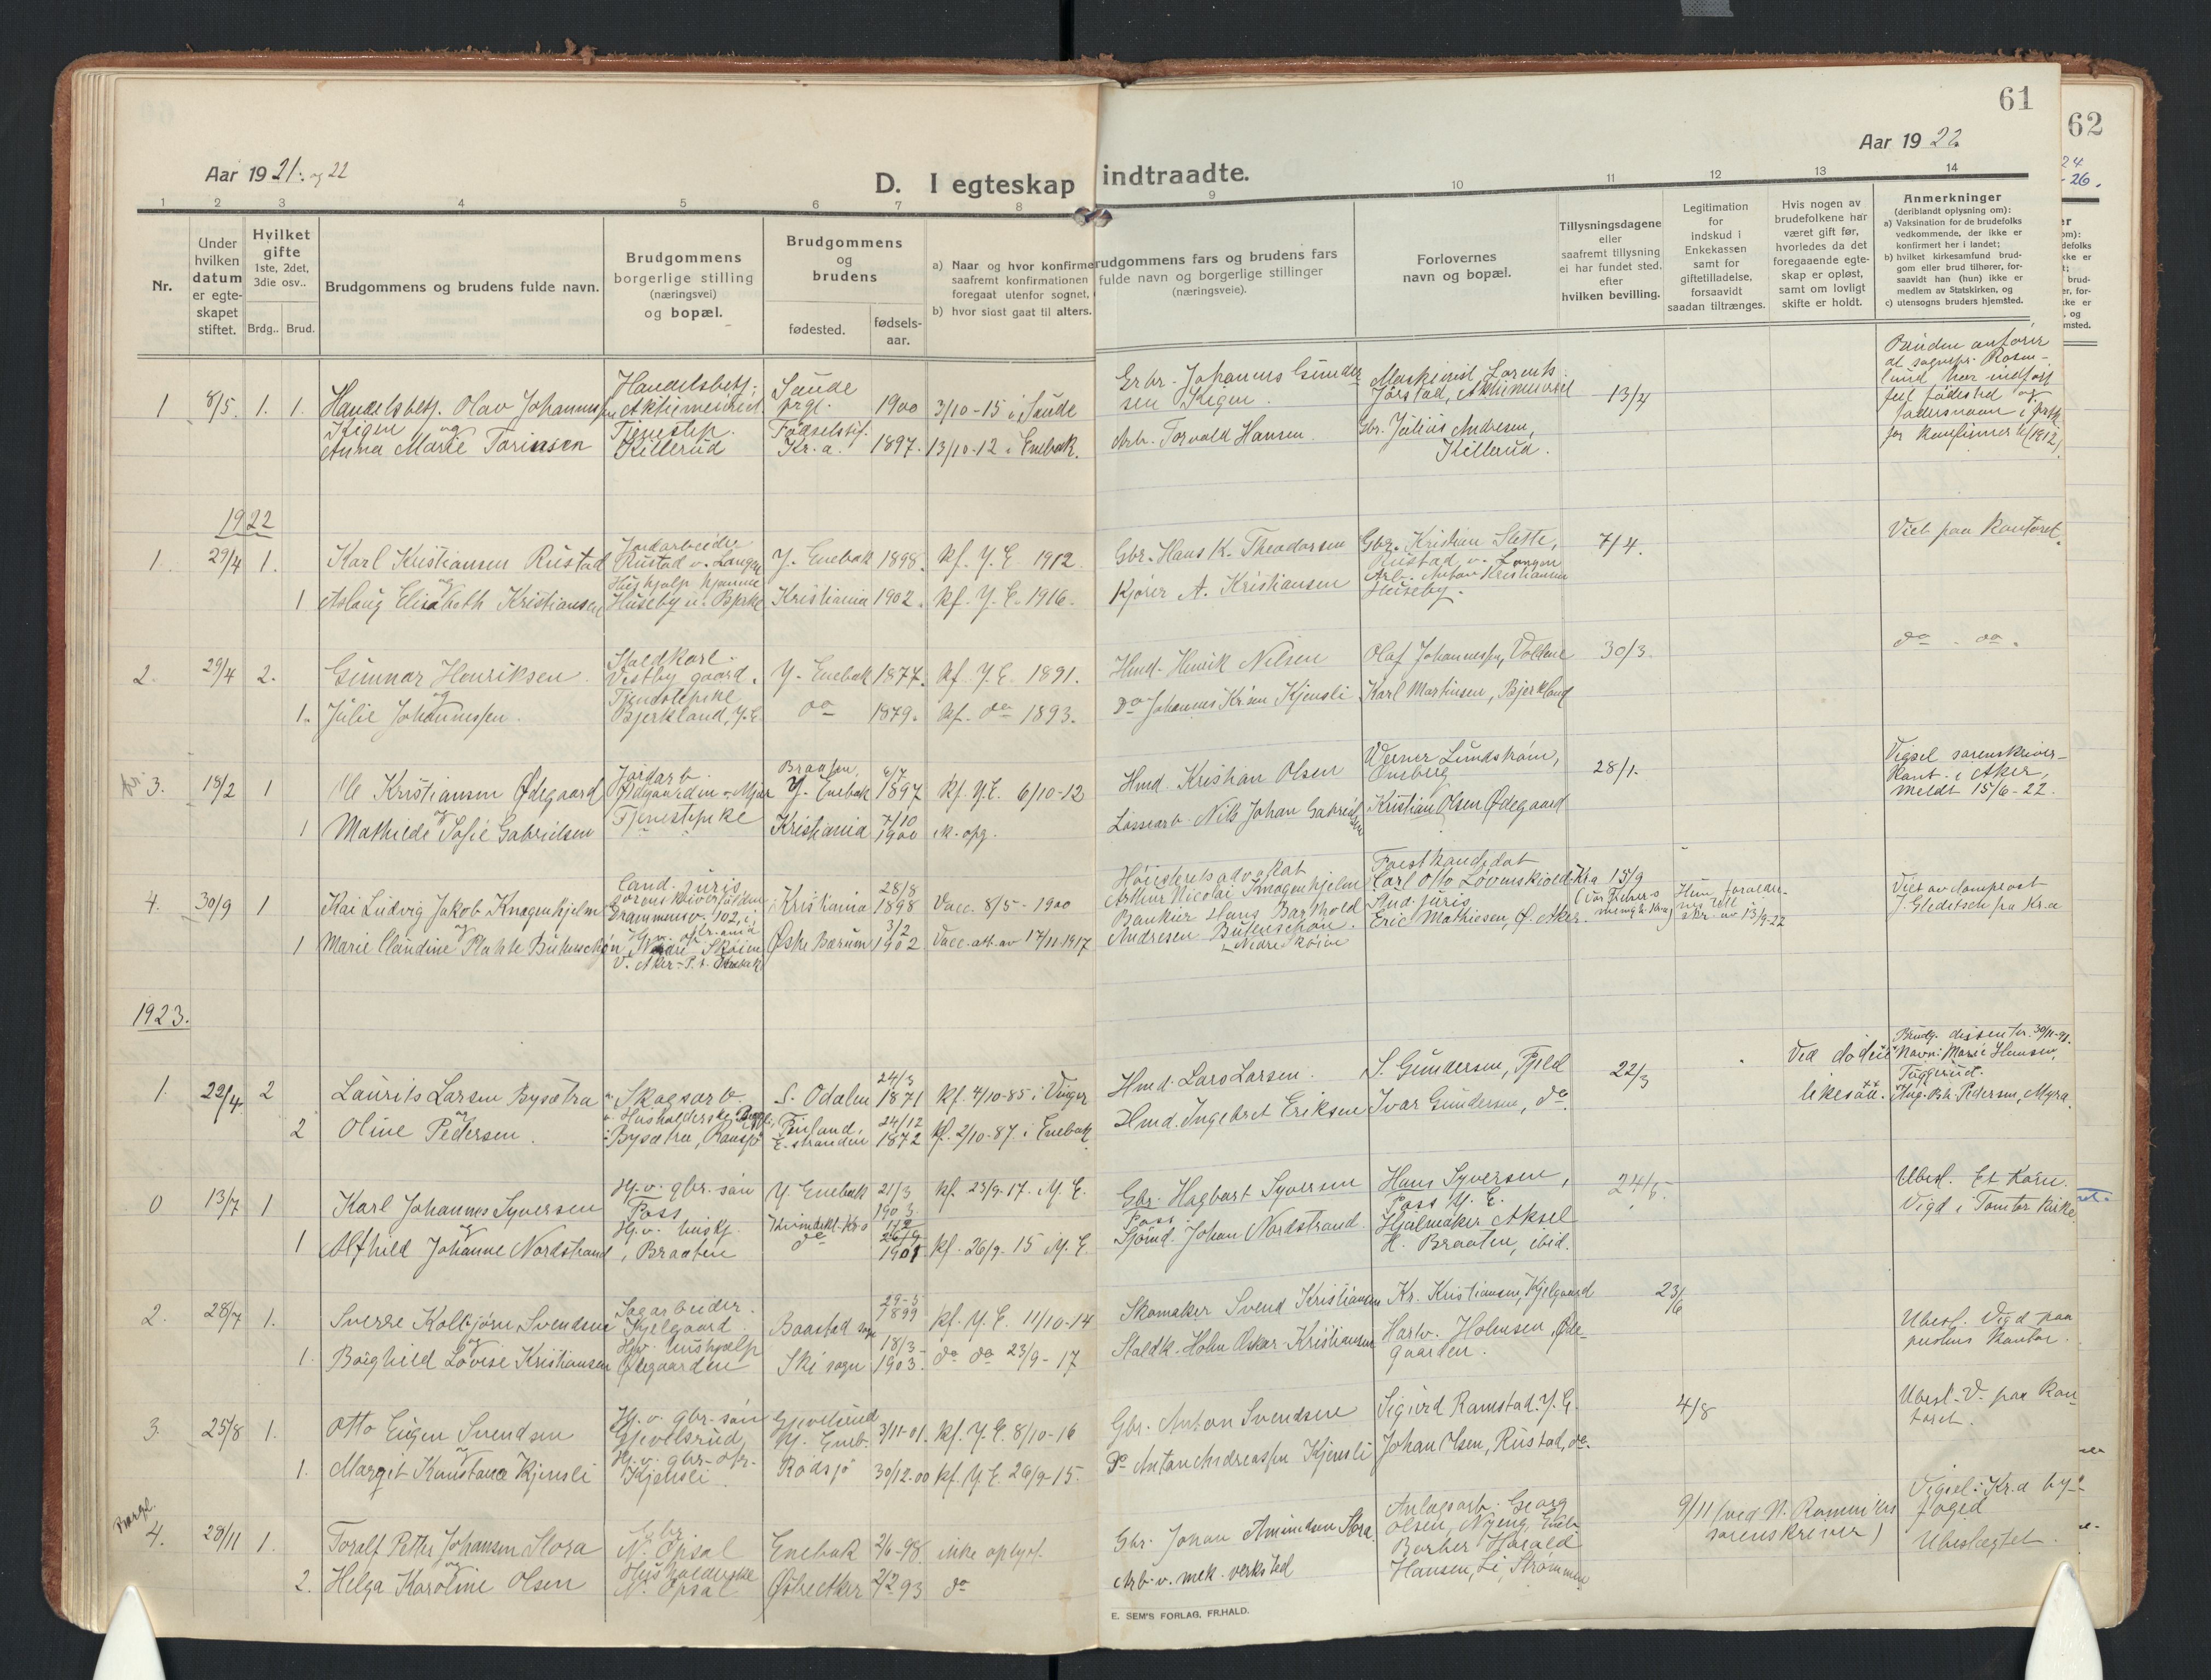 61
62
Aar 19 21. og 22
Aar 19 22.
D. I egteskap indtraadte.
1 2 3 4 5 6 7 8 9 10 11 12 13 14
Nr.
Under
hvilken
datum
er egte-
skapet
stiftet.
Hvilket
gifte
1ste, 2det,
3die osv..
Brdg.. Brud.
Brudgommens og brudens fulde navn.
Brudgommens
borgerlige stilling
(næringsvei)
og bopæl.
Brudgommens
og
brudens
fødested.
fødsels-
aar.
a) Naar og hvor konfirme
saafremt konfirmationen
foregaat utenfor sognet,
b) hvor sidst gaat til alters.
rudgommens fars og brudens fars
fulde navn og borgerlige stillinger
(næringsveie).
Forlovernes
navn og bopæl.
Tillysningsdagene
eller
saafremt tillysning
ei har fundet sted,
efter
hvilken bevilling.
Legitimation
for
Indskud i
Enkekassen
samt for
giftetilladelse,
forsaavidt
saadan tiltrænges.
Hvis nogen av
brudefolkene har
været gift før,
hvorledes da det
foregaaende egte-
skap er opløst,
samt om lovligt
skifte er holdt.
Anmerkninger
(deriblandt oplysning om):
a) Vaksination for de brudefolks
vedkommende, der ikke er
konfirmert her i landet;
b) hvilket kirkesamfund brud-
gom eller brud tilhører, for-
saavidt han (hun) ikke er
medlem av Statskirken, og
c) utensogns bruders hjemsted.
1 8/5. 1. 1. Handelsbetj. Olav Johannessen
Kigen og
Anna Marie Torinsen
Handelsbetj.
Tjenestep.
Killerud
Saude
prgl.
Fødselsstif.
Kr.a.
1900 3/10-15 i Saude
1897. 13/10-12 i Enebak.
Gbr. Johannes Gunder
sen Kigen.
Arb. Torvald Hansen.
Maskinist Lorents
Gbr. Julius Andresen,
Killerud.
13/4
Bruden anfører
at sognepr. Rosen-
lund har indført
feil fødested og
farsnavn i prot.
for konfirmerte (1912)
1922
1. 29/4 1. Karl Kristiansen Rustad
og
1 Aslaug Elisabeth Kristiansen
Jordarbeider
Rustad v. Langen
Hushjælp hjemme
Huseby v. Bjrke
Y. Enebak 1898. kf. Y. E. 1912.
Kristiania 1902. kf. Y. E. 1916.
Gbr. Hans K. Theodorsen
Kjører A. Kristiansen
Gbr. Kristian Slette,
Rustad v. Langen
Arb. Anton Kristiansen
Huseby.
7/4.
Viet paa kontoret.
2. 29/4 2. Gunnar Henriksen.
og
1. Julie Johannessen.
Staldkarl.
Vestby gaard.
Tjenestepike
Bjerkland, Y.E.
Y. Enebak 1877. kf. Y. E. 1891.
do 1879. kf. do 1893.
Hmd. Henrik Nilsen
do Johannes Kr.sen Kjensli
Olaf Johannessen, Voldene
Karl Martinsen, Bjerkland
30/3.
do. do.
3. 18/2 1 Ole Kristiansen Ødegaard
og
1 Mathilde Sofie Gabrielsen
Jordarb.
Ødegaarden v. Mjær
Tjenestepike
Braaten,
Y. Enebak 6/7 1897 kf. Y.E. 6/10-12
Kristiania 7/10 1900 ik. opg.
Hmd. Kristian Olsen
Løssearb. Nils Johan Gabrielsen
Werner Lundstrøm,
Kristian Olsen Ødegaard
28/1.
Vigsel sorenskriver-
kont. i Aker,
meldt 15/6-22.
4. 30/9 1 Kai Ludvig Jakob Knagenhjelm
og
1 Marie Claudine Plahte Butenschøn
Cand. juris
Sorenskriverfuldm.
Drammensv. 102, i
Nedre Skøien
V. Aker
Kristiania 28/8 1898 Vacc. 8/5-1900
Østre Bærum 3/2 1902 Vacc. att. av 17/11-1917
Høiesteretsadvokat
Arthur Nicolai Knagenhjelm
Bankier Hans Barthold
Andresen Butenschøn.
Nedre Skøien
Forstkandidat
Carl Otto Løvenskiold
Stud. juris
Eric Mathiesen, Ø. Aker.
Kra 15/9
Viet av domprost
J. Gleditsch fra Kr.a
1923.
1. 22/4 2 Laurits Larsen Bysætra
og
2 Oline Pedersen.
Skogsarb.
Husholderske
Bysætra, Ransjø
S. Odalen 24/3 1871 kf. 4/10-85 i Vinger
Finland,
E. stranden 24/12 1872 kf. 2/10-87. i Enebak
Hmd. Lars Larsen.
Hmd. Ingebret Eriksen
S. Gundersen, Fjeld
Ivar Gundersen, do.
22/3
Ved døden
likesaa.
Navn: Marie Hansen,
Tuggerud.
Aug. Bh. Pedersen, Myra.
0 13/7 1 Karl Johannes Syversen
og
1 Alfhild Johanne Nordstrand
Hj. v. gbr. søn
Poss
Hj. v. huslg.
, Braaten
Y. Enebak 21/3 1903 kf. 23/9-17. Y. E.
do 26/9 1901 kf. 26/9-15 Y. E.
Gbr. Hagbart Syversen
Poss.
Sjømd. Johan Nordstrand.
Hans Syversen,
Poss Y. E.
Hjulmaker Aksel
H. Braaten, ibid.
24/6.
Ubesl. Et Korn.
Vigd i Tomter kirke.
2. 28/7 1. Sverre Kolbjørn Svendsen
og
1. Borghild Lovise Kristiansen
Sagarbeider.
Kjelgaard.
Hjv. hushjælp
Ødegaarden
Baastad sogn 29-5 1899 kf. Y. E. 11/10-14
Ski sogn 18/3- 1903. do do 23/9-17
Skomaker Svend Kristiansen
Staldk. Holm Oskar Kristiansen
Kr. Kristiansen, Kjelgaard
Harw. Holmsen, Øde-
gaarden.
23/6
Ubesl. Vigd paa
prestens kontor.
3. 25/8 1. Otto Eugen Svendsen
og
1. Margit Konstance Kjensli
Hj. v. gbr. søn
Gjevelsrud,
Hj. v. gbr. dtr.
Kjensli.
Gjevelsrud
Y. Eneb. 3/11-01. kf. Y. E. 8/10-16
Rødsjø 30/12.00 kf. Y. E. 26/9-15.
Gbr. Anton Svendsen
do Anton Andreassen Kjensli
Sigurd Ramstad. Y. E.
Johan Olsen, Rustad, do.
4/8
Ubesl. V. paa kon-
toret.
Borgl.
4. 29/11 1. Toralf Petter Johansen Stora
og
2. Helga Karoline Olsen
Gbr.
N. Opsal
Husholderske
N. Opsal
Enebak 2/6-98 ikke oplyst.
Østre Aker 2/2 93 do
Gbr. Johan Amundsen Stora
Arb. v. mek. verksted
Anlegsarb. Georg
Olsen, Nyeng, Eneb.
Barber Harald
Hansen, Li, Strømmen
9/11 (ved N. Romerikes
sorenskriver)
Vigsel: Kr.a by-
foged
Ubeslegtet.
E. SEM'S FORLAG, FR.HALD.